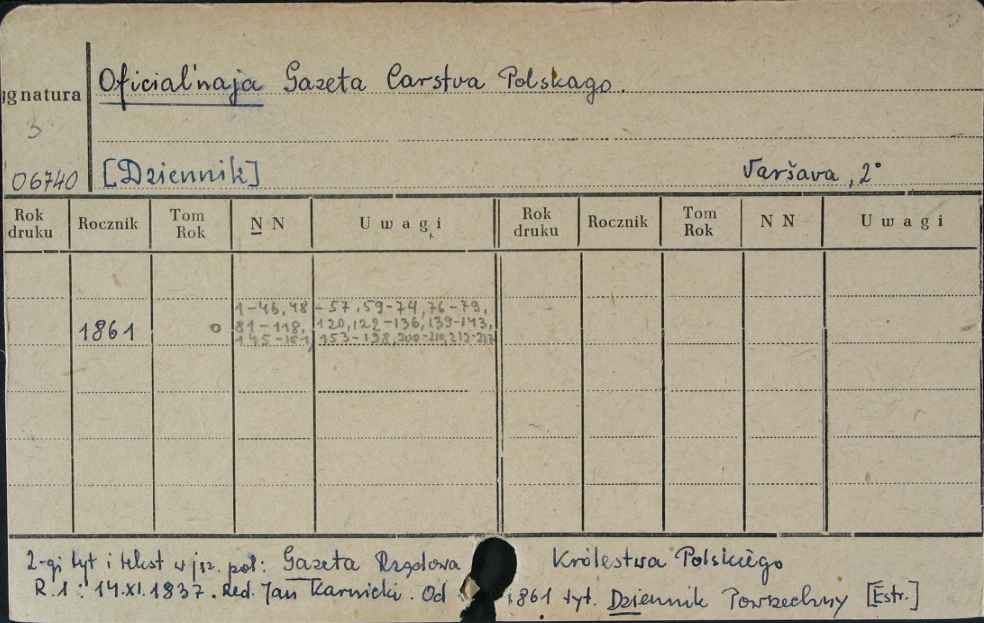 Oficial'naja Gazeta Carstva Polskago.
ygnatura
3
06740 [Dziennik] Varšava, 2°
Rok druku Rocznik Tom Rok N N Uwagi Rok druku Rocznik Tom Rok N N Uwagi
1-46, 48-57, 59-74, 76-79,
1861 o 81-118, 120, 122-136, 139-143,
145-151, 153-198, 200-210, 212-217
2-gi tyt i tekst w jęz. pol: Gazeta Rządowa Królestwa Polskiego
R.1: 14.XI.1837. Red. Jan Karnicki. Od 1861 tyt. Dziennik Powszechny [Estr.]